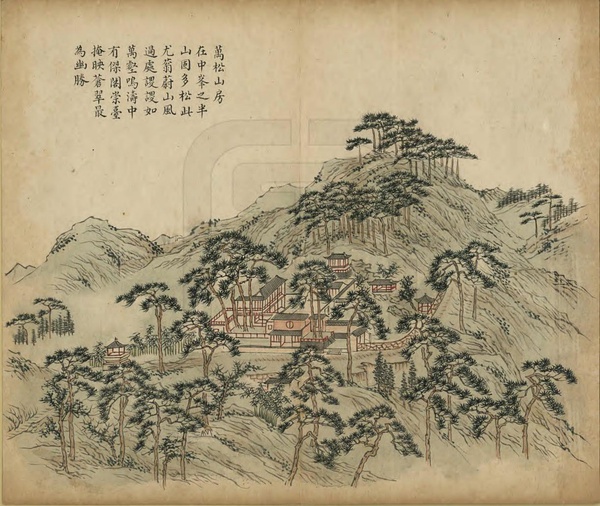 萬松山房
在中峯之半
山固多松此
尤蓊蔚山風
過處謖謖如
萬壑鳴濤中
有傑閣崇臺
掩映蒼翠最
為幽勝